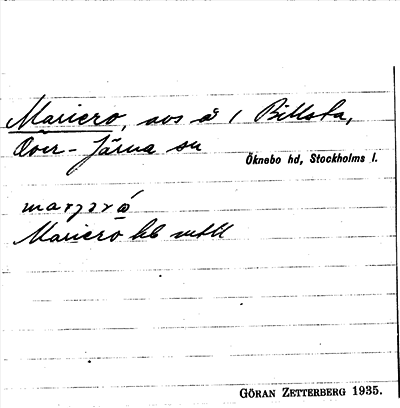 Mariero, avs å i Billsta,
Över-Järna sn
Öknebo hd, Stockholms l.
Mariero
GÖRAN ZETTERBERG 1935.